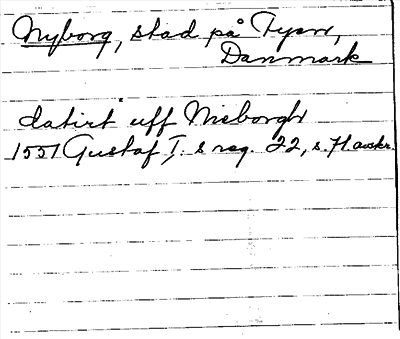 Nyborg, stad på Fyen,
Danmark
datirt uff Nieborgh
1551 Gustaf I. s reg. 22, s. 71 avskr.